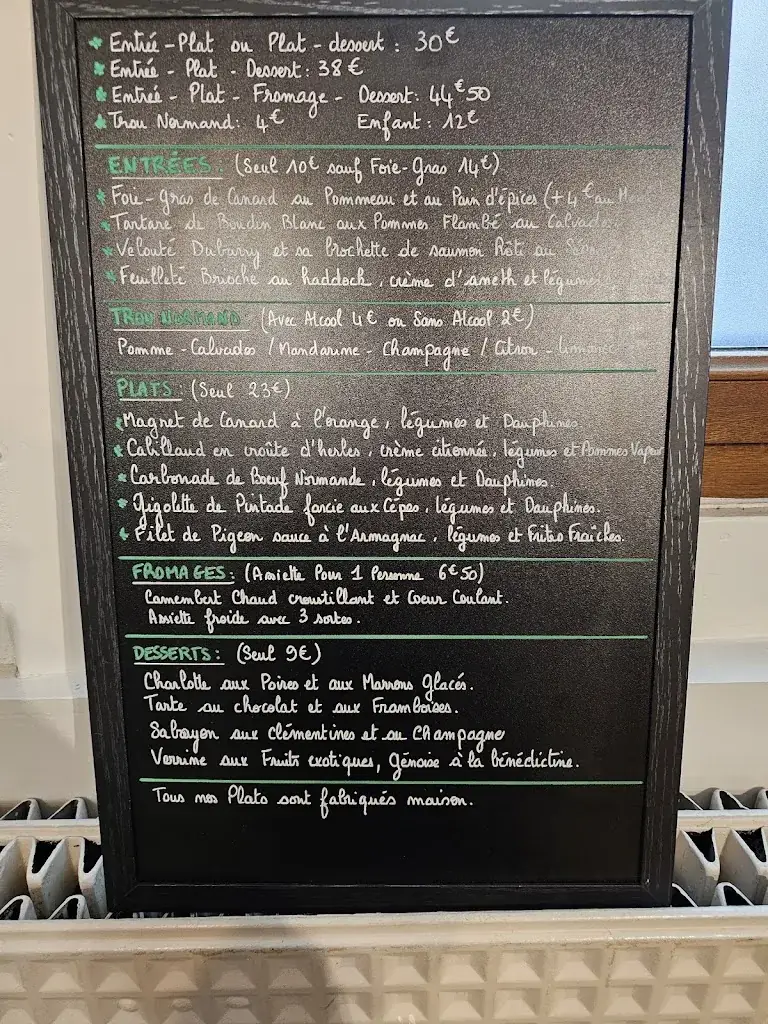 Entrée - Plat ou Plat - dessert : 30€
Entrée - Plat - Dessert : 38 €
Entrée - Plat - Fromage - Dessert : 44€50
Trou Normand : 4€ Enfant : 12€
ENTRÉES : (Seul 10€ sauf Foie-Gras 14€)
Foie-gras de Canard au Pommeau et au Pain d'épices (+4€ au
Tartare de Boudin Blanc aux Pommes Flambé au Calvados
Velouté Dubarry et sa brochette de saumon Rôti au
Feuilleté Brioché au haddock, crème d'aneth et légumes
TROU NORMAND (Avec Alcool 4€ ou Sans Alcool 2€)
Pomme - Calvados / Mandarine - Champagne / Citron -
PLATS : (Seul 23€)
Magret de Canard à l'orange, légumes et Dauphines
Cabillaud en croûte d'herbes, crème citronnée, légumes et Pommes Vapeur
Carbonade de Boeuf Normande, légumes et Dauphines.
Gigolette de Pintade farcie aux Cépes, légumes et Dauphines.
Filet de Pigeon sauce à l'Armagnac, légumes et Frites Fraîches.
FROMAGES : (Assiette Pour 1 Personne 6€50)
Camembert Chaud croustillant et Coeur Coulant.
Assiette froide avec 3 sortes.
DESSERTS : (Seul 9€)
Charlotte aux Poires et aux Marrons glacés.
Tarte au chocolat et aux Framboises.
Sabayon aux clémentines et au Champagne
Verrine aux Fruits exotiques, génoise à la bénédictine.
Tous nos Plats sont fabriqués maison.